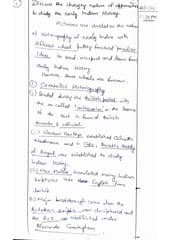 ① Discuss the changing nature of approaches
to study the early Indian History.
Historians are divided on the nature
of Historiography of early India with
different school putting forward peculiar
ideas to read interpret and learn from
early Indian history
However, these schools are known
① Orientalist Historiography
① Started during the British period with
the so-called "orientalist" in the
of the east in form of British
servants & officials
(i) → Warren Hastings established Calcutta
Madrassa and in 1784, Asiatic Society
of Bengal was established to study
Indian history.
(ii) Max Muller translated many Indian
scriptures into English from
Sanskrit
(iii) Major breakthrough came when the
Ashokan script was deciphered and
the A.S.I. was established under
Alexander Cunningham